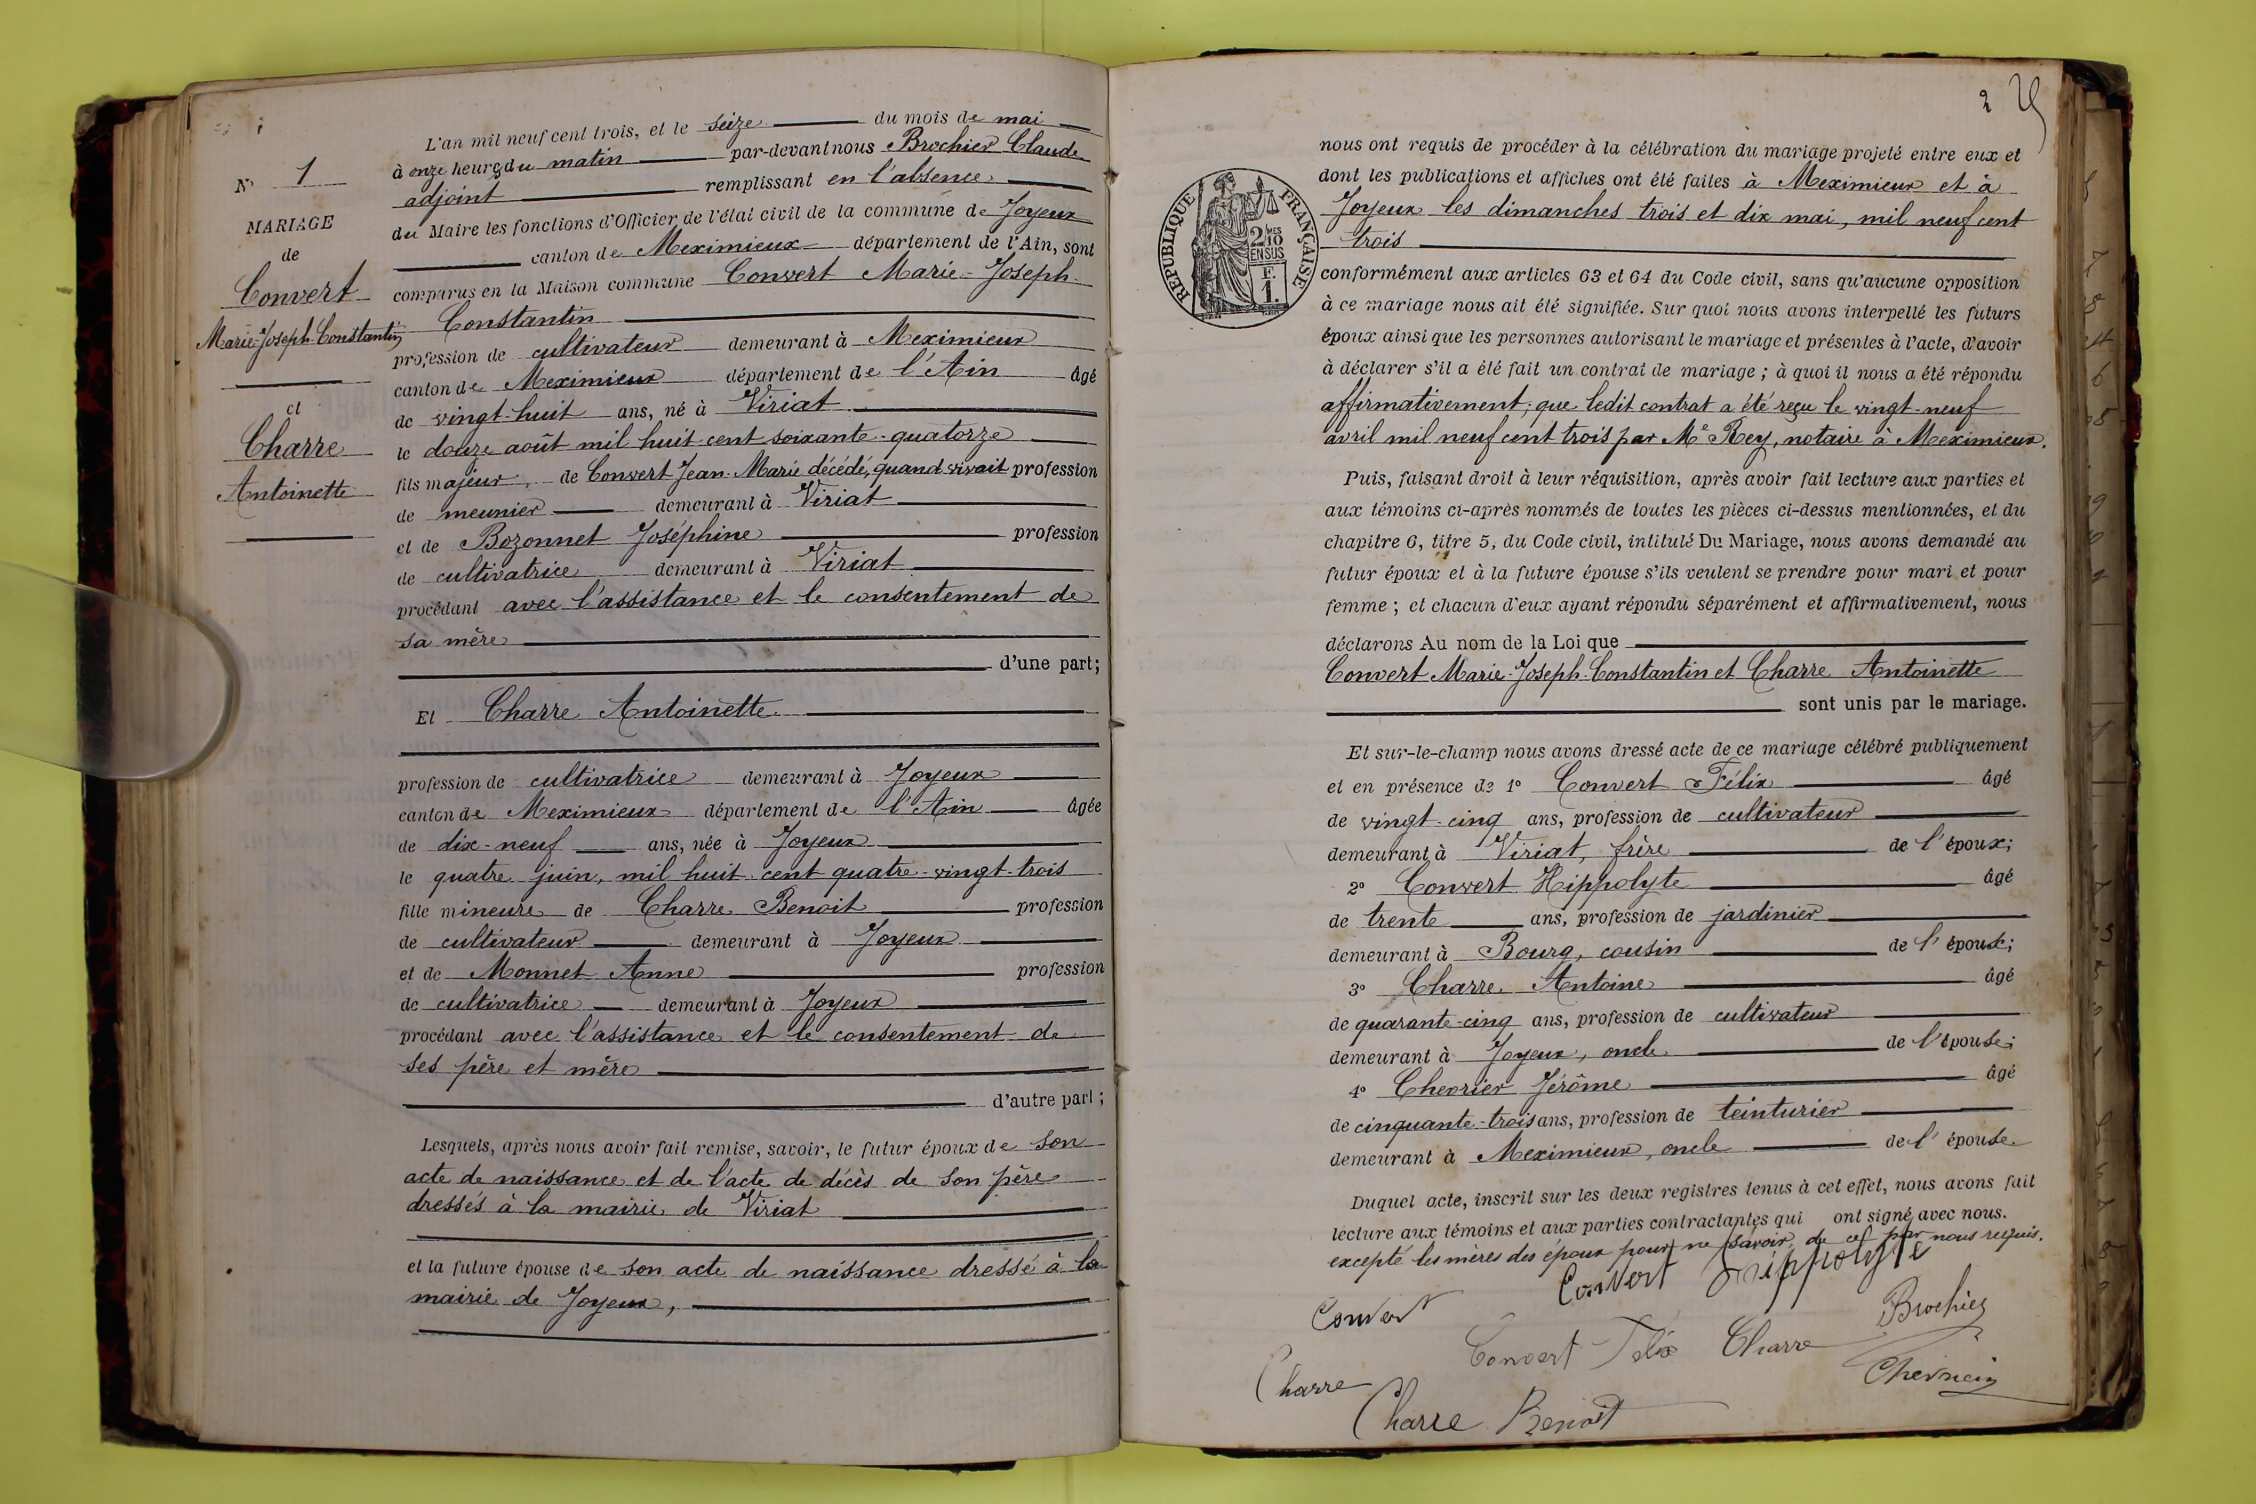 N° 1
MARIAGE
de
Convert
Marie-Joseph-Constantin
et
Charre
Antoinette
L'an mil neuf cent trois, et le seize du mois de mai
à onze heures du matin par-devant nous Brochier Claude
adjoint remplissant en l'absence
du Maire les fonctions d'Officier de l'état civil de la commune de Joyeux
canton de Meximieux département de l'Ain, sont
comparus en la Maison commune Convert Marie-Joseph-
Constantin
profession de cultivateur demeurant à Meximieux
canton de Meximieux département de l'Ain âgé
de vingt-huit ans, né à Viriat
le douze août mil huit cent soixante-quatorze
fils majeur de Convert Jean-Marie décédé, quand vivait profession
de meunier demeurant à Viriat
et de Bozonnet Joséphine profession
de cultivatrice demeurant à Viriat
procédant avec l'assistance et le consentement de
sa mère
d'une part;
Et Charre Antoinette
profession de cultivatrice demeurant à Joyeux
canton de Meximieux département de l'Ain âgée
de dix-neuf ans, née à Joyeux
le quatre juin, mil huit cent quatre-vingt-trois
fille mineure de Charre Benoit profession
de cultivateur demeurant à Joyeux
et de Monnet Anne profession
de cultivatrice demeurant à Joyeux
procédant avec l'assistance et le consentement de
ses père et mère
d'autre part;
Lesquels, après nous avoir fait remise, savoir, le futur époux de son
acte de naissance et de l'acte de décès de son père
dressés à la mairie de Viriat
et la future épouse de son acte de naissance dressé à la
mairie de Joyeux,
2 25
RÉPUBLIQUE FRANÇAISE
2/10 MES
EN SUS
F.
1.
nous ont requis de procéder à la célébration du mariage projeté entre eux et
dont les publications et affiches ont été faites à Meximieux et à
Joyeux les dimanches trois et dix mai, mil neuf cent
trois
conformément aux articles 63 et 64 du Code civil, sans qu'aucune opposition
à ce mariage nous ait été signifiée. Sur quoi nous avons interpellé les futurs
époux ainsi que les personnes autorisant le mariage et présentes à l'acte, d'avoir
à déclarer s'il a été fait un contrat de mariage; à quoi il nous a été répondu
affirmativement, que ledit contrat a été reçu le vingt-neuf
avril mil neuf cent trois par Me Rey, notaire à Meximieux.
Puis, faisant droit à leur réquisition, après avoir fait lecture aux parties et
aux témoins ci-après nommés de toutes les pièces ci-dessus mentionnées, et du
chapitre 6, titre 5, du Code civil, intitulé Du Mariage, nous avons demandé au
futur époux et à la future épouse s'ils veulent se prendre pour mari et pour
femme; et chacun d'eux ayant répondu séparément et affirmativement, nous
déclarons Au nom de la Loi que
Convert Marie-Joseph-Constantin et Charre Antoinette
sont unis par le mariage.
Et sur-le-champ nous avons dressé acte de ce mariage célébré publiquement
et en présence de 1° Convert Félix âgé
de vingt-cinq ans, profession de cultivateur
demeurant à Viriat, frère de l'époux;
2° Convert Hippolyte âgé
de trente ans, profession de jardinier
demeurant à Bourg, cousin de l'époux;
3° Charre Antoine âgé
de quarante-cinq ans, profession de cultivateur
demeurant à Joyeux, oncle de l'épouse;
4° Chevrier Jérôme âgé
de cinquante-trois ans, profession de teinturier
demeurant à Meximieux, oncle de l'épouse
Duquel acte, inscrit sur les deux registres tenus à cet effet, nous avons fait
lecture aux témoins et aux parties contractantes qui ont signé avec nous.
excepté les mères des époux pour ne savoir, de ce par nous requis.
Convert Hippolyte
Convert
Brochier
Convert Félix Charre
Charre
Charre Benoit